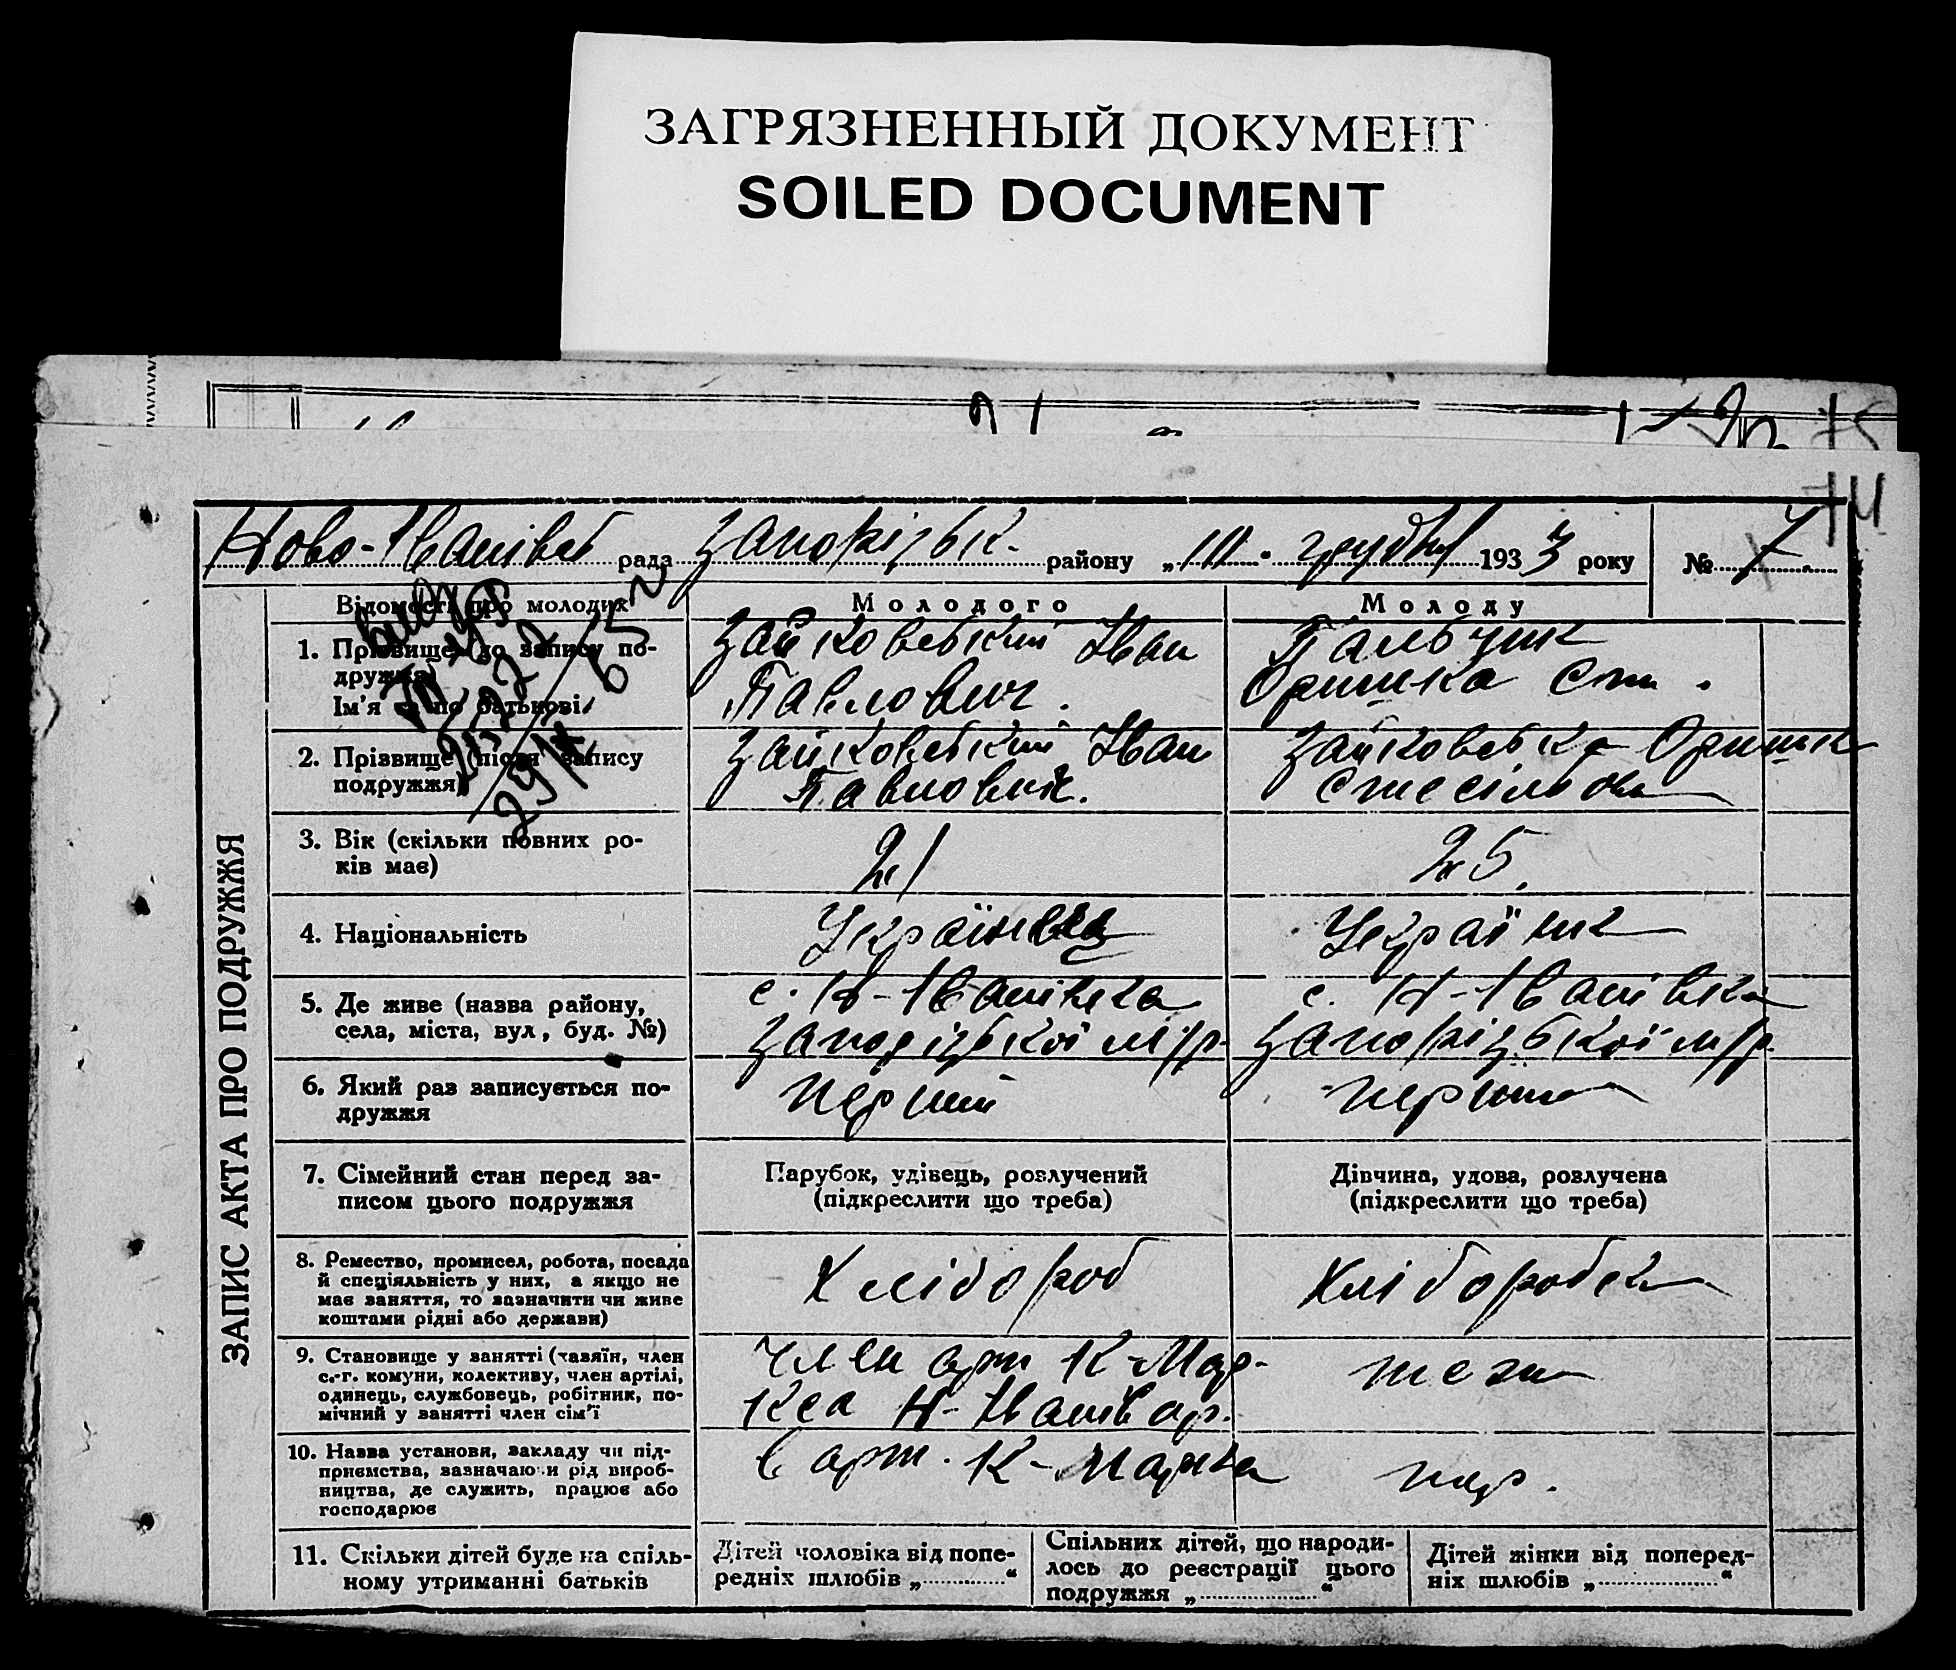 ЗАГРЯЗНЕННЫЙ ДОКУМЕНТ
SOILED DOCUMENT
75
74
Ново-Іванівськ рада Запорізьк. району „10“ грудня 1933 року № 7
ЗАПИС АКТА ПРО ПОДРУЖЖЯ
Відомості про молодих
Молодого
Молоду
1. Прізвище до запису по-
дружжя
Ім'я та по батькові
Зайковський Іван
Павлович.
Пальчик
Оришка Ст.
2. Прізвище (після запису
подружжя)
Зайковський Іван
Павлович.
Зайковська Оришка
3. Вік (скільки повних ро-
ків має)
21
25.
4. Національність
Українець
Українк
5. Де живе (назва району,
села, міста, вул, буд. №)
с. Н-Іванівка
Запорізької м/р.
с. Н-Іванівка
Запорізької м/р.
6. Який раз записується по-
дружжя
перший
перша
7. Сімейний стан перед за-
писом цього подружжя
Парубок, удівець, розлучений
(підкреслити що треба)
Дівчина, удова, розлучена
(підкреслити що треба)
8. Ремество, промисел, робота, посада
й спеціяльність у них, а якщо не
має заняття, то зазначити чи живе
коштами рідні або держави)
Хлібороб
Хліборобка
9. Становище у занятті (хазяїн, член
с.-г. комуни, колективу, член артілі,
одинець, службовець, робітник, по-
мічний у занятті член сім'ї
член арт К-Мар-
кса Н-Іванів
теж
10. Назва установи, закладу чи під-
приємства, зазначаючи рід вироб-
ництва, де служить, працює або
господарює
в арт. К-Маркса
11. Скільки дітей буде на спіль-
ному утриманні батьків
Дітей чоловіка від попе-
редніх шлюбів „ “
Спільних дітей, що народи-
лось до реєстрації цього
подружжя „ “
Дітей жінки від поперед-
ніх шлюбів „ “